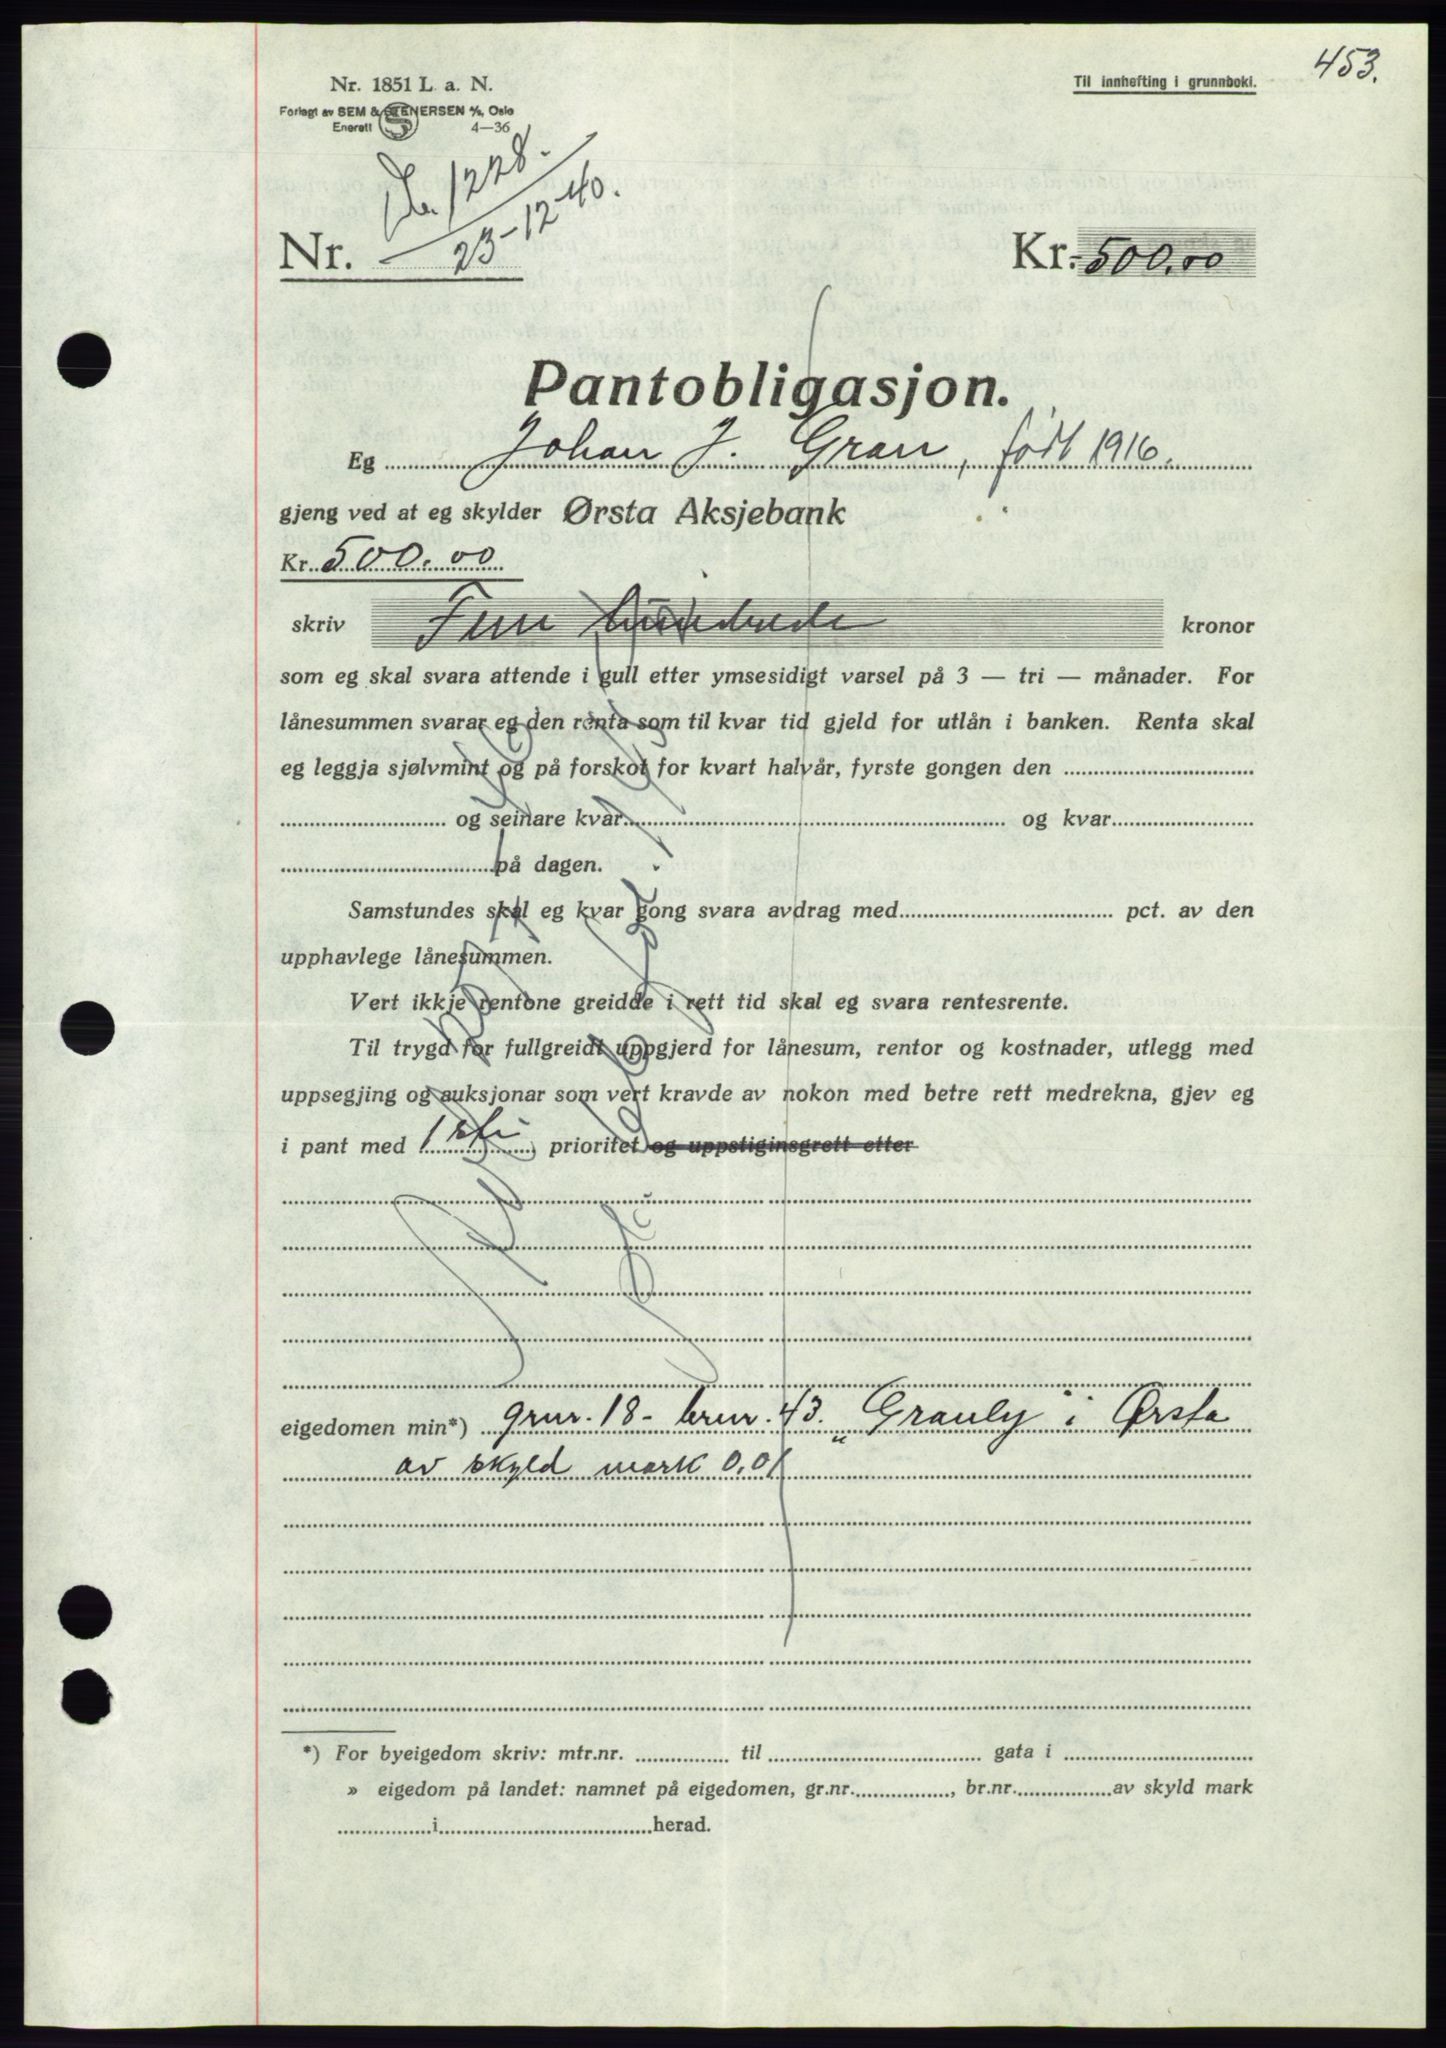 453.
Nr. 1851 L. a. N.
Til innhefting i grunnboki.
Forlagt av SEM & STENERSEN A/S, Oslo
Enerett 4—36
1228.
23-12-40.
Nr.
Kr. 500.00
Pantobligasjon.
Eg Johan J. Gran, født 1916.
gjeng ved at eg skylder Ørsta Aksjebank
Kr. 500.00
skriv Fem hundrede kronor
som eg skal svara attende i gull etter ymsesidigt varsel på 3 — tri — månader. For
lånesummen svarar eg den renta som til kvar tid gjeld for utlån i banken. Renta skal
eg leggja sjølvmint og på forskot for kvart halvår, fyrste gongen den
og seinare kvar og kvar
på dagen.
Samstundes skal eg kvar gong svara avdrag med pct. av den
upphavlege lånesummen.
Vert ikkje rentone greidde i rett tid skal eg svara rentesrente.
Til trygd for fullgreidt uppgjerd for lånesum, rentor og kostnader, utlegg med
uppsegjing og auksjonar som vert kravde av nokon med betre rett medrekna, gjev eg
i pant med 1ste prioritet og uppstiginsgrett etter
eigedomen min*) grnr. 18 - brnr. 43. „Granly" i Ørsta
av skyld mark 0,01
*) For byeigedom skriv: mtr.nr. til gata i
» eigedom på landet: namnet på eigedomen, gr.nr. , br.nr. av skyld mark
i herad.